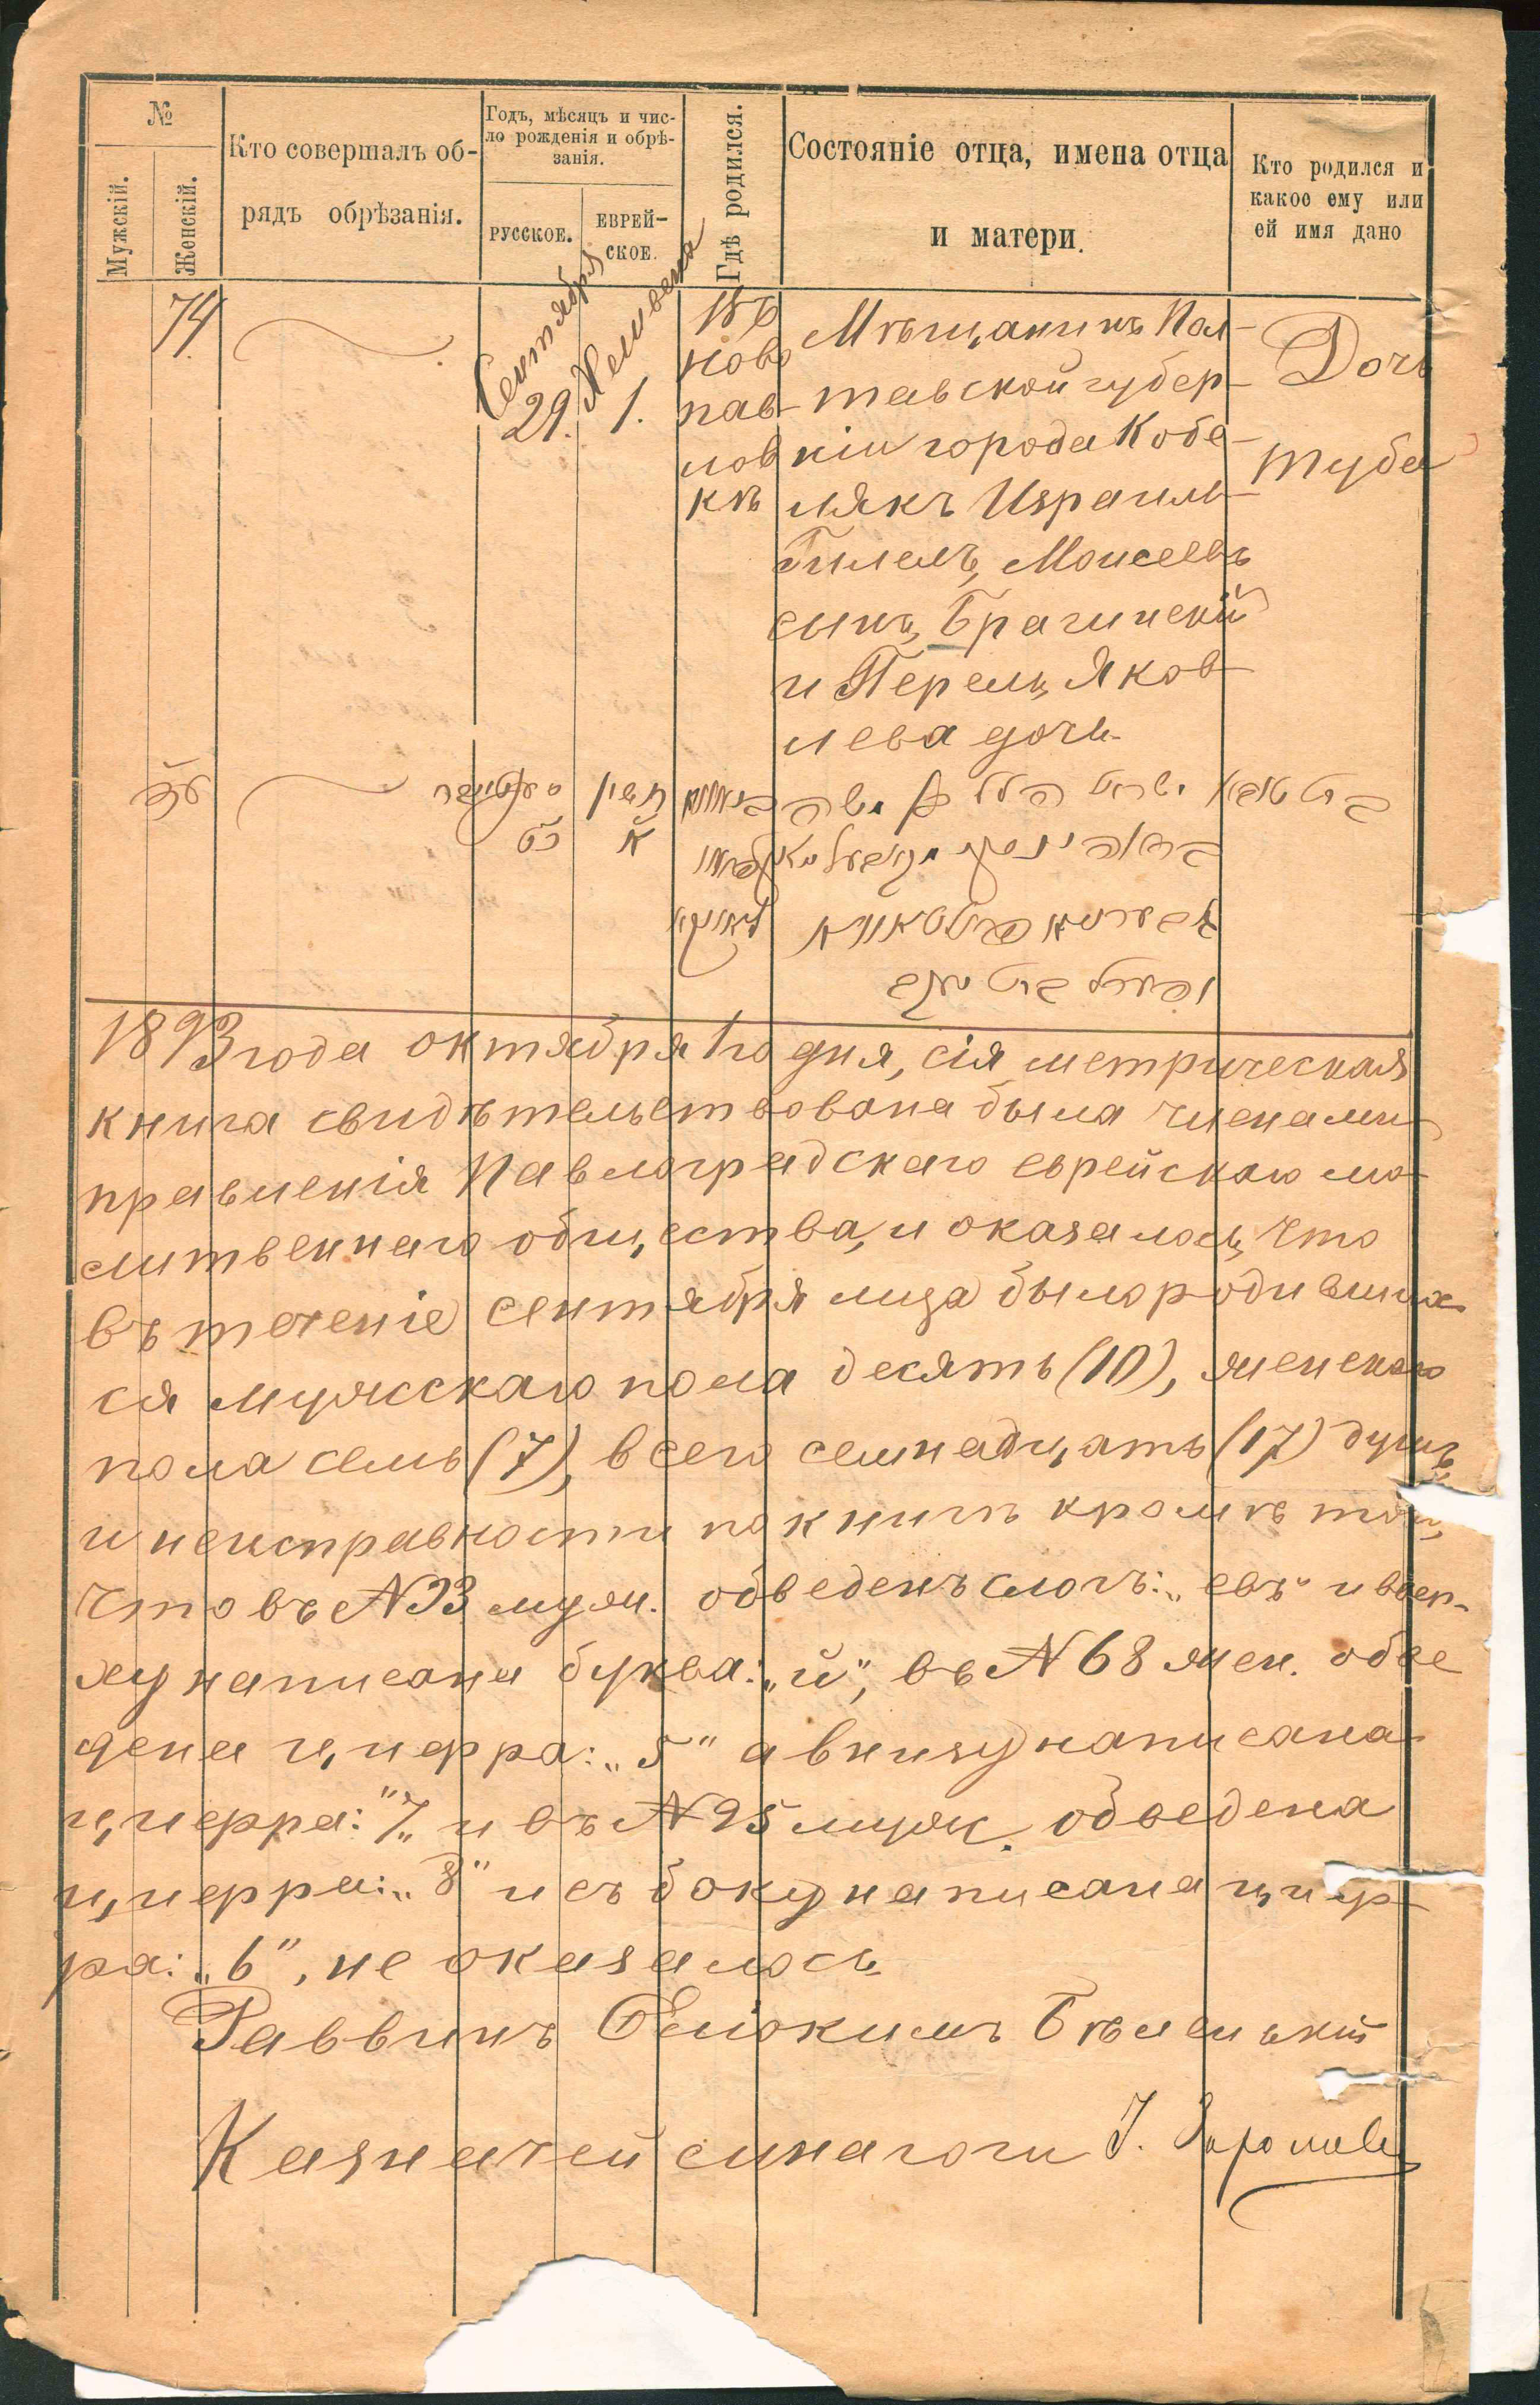 №
Мужскій.
Женскій.
Кто совершалъ об-
рядъ обрѣзанія.
Годъ, мѣсяцъ и чис-
ло рожденія и обрѣ-
занія.
РУССКОЕ.
ЕВРЕЙ-
СКОЕ.
Гдѣ родился.
Состояніе отца, имена отца
и матери.
Кто родился и
какое ему или
ей имя дано
74
Сентября
29.
1.
Въ
ново
пав-
лов
кѣ
Мѣщанинъ Пол-
тавской губер-
ніи города Кобе-
лякъ Израиль-
Гилелъ, Моисеевъ
сынъ, Брагинскій
и Перель, Яков-
лева дочь
Дочь
Туба
1893 года октября 1го дня, сія метрическая
книга свидѣтельствована была членами
правленія Павлоградскаго еврейскаго мо-
литвеннаго общества, и оказалось, что
въ теченіе сентября мца было родивших-
ся мужскаго пола десять (10), женскаго
пола семь (7), всего семнадцать (17) душъ,
и неисправности по книгѣ кромѣ той,
что въ N 93 муж. обведенъ слогъ: „евъ" и ввер-
ху написана буква: „й", въ N 68 жен. обве
дена цифра: „5" а внизу написана
цифра: "7„ и въ N 95 муж. обведена
цифра: „8" и съ боку написана циф-
ра: „6", не оказалось
Раввинъ Еліокимъ Бѣленькій
Казначей синагоги